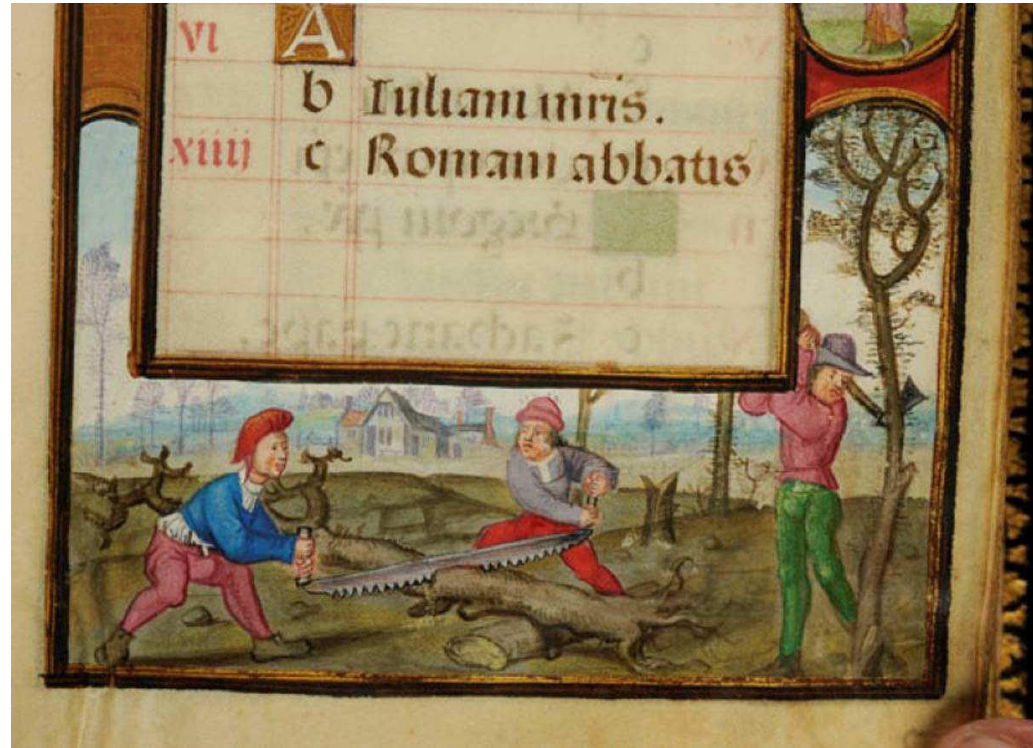 vi A
b Iuliani uiris.
xiiij c Romani abbatis